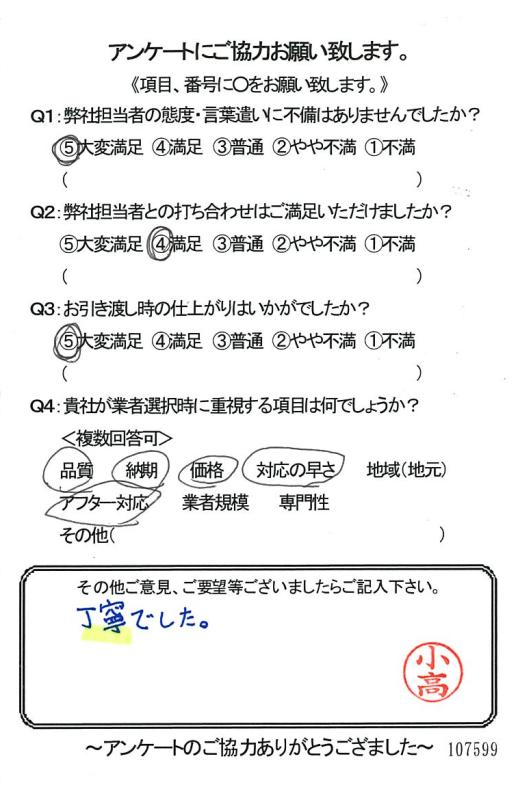 アンケートにご協力お願い致します。
《項目、番号に○をお願い致します。》
Q1:弊社担当者の態度・言葉遣いに不備はありませんでしたか?
⑤大変満足 ④満足 ③普通 ②やや不満 ①不満
( )
Q2:弊社担当者との打ち合わせはご満足いただけましたか?
⑤大変満足 ④満足 ③普通 ②やや不満 ①不満
( )
Q3:お引き渡し時の仕上がりはいかがでしたか?
⑤大変満足 ④満足 ③普通 ②やや不満 ①不満
( )
Q4:貴社が業者選択時に重視する項目は何でしょうか?
<複数回答可>
品質 納期 価格 対応の早さ 地域(地元)
アフター対応 業者規模 専門性
その他( )
その他ご意見、ご要望等ございましたらご記入下さい。
丁寧でした。
小高
~アンケートのご協力ありがとうござました~ 107599